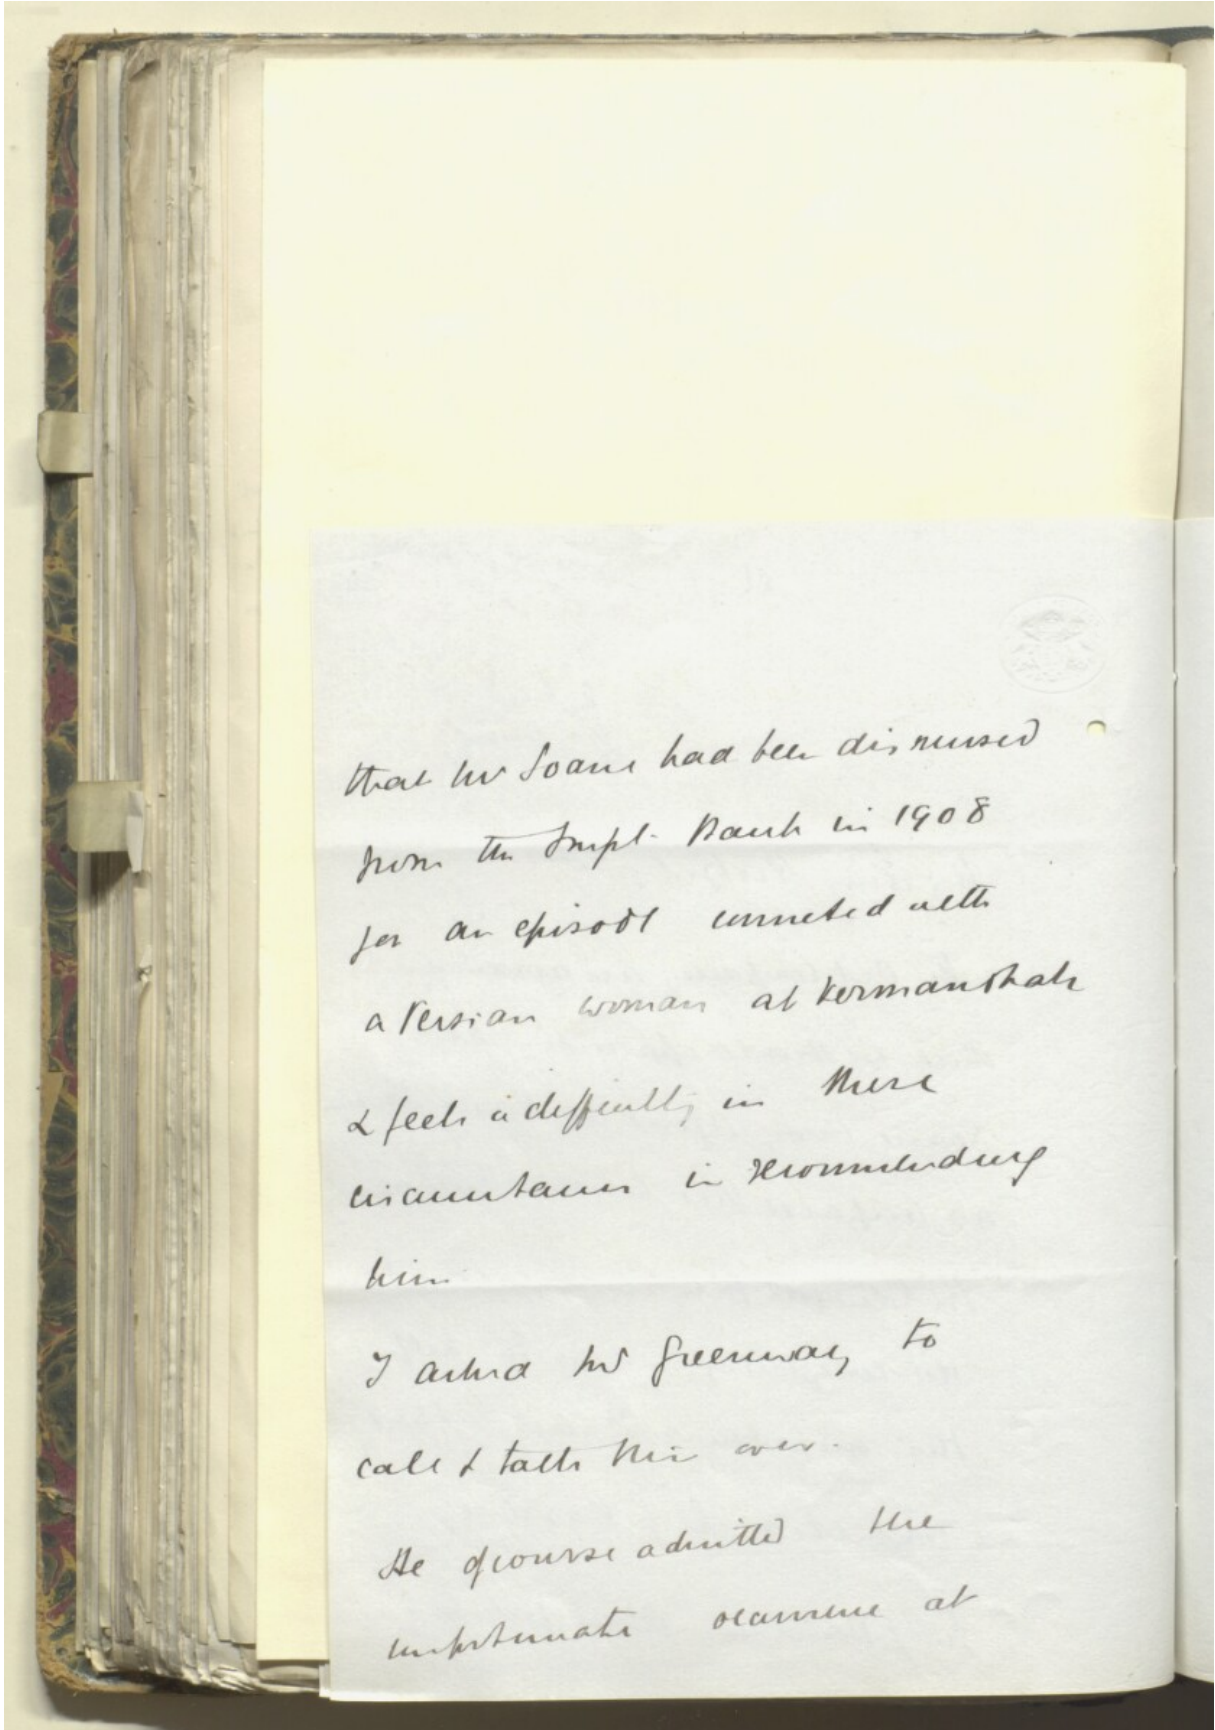 that Mr Soane had been dismissed
from the Impl. Bank in 1908
for an episode connected with
a Persian woman at Kermanshah
& feels a difficulty in these
circumstances in recommending
him
I asked Mr Greenway to
call & talk this over.
He of course admitted the
unfortunate occurrence at